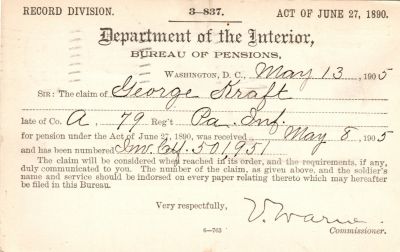 RECORD DIVISION. 3—837. ACT OF JUNE 27, 1890.
Department of the Interior,
BUREAU OF PENSIONS,
WASHINGTON, D. C., May 13, 1905
SIR: The claim of George Kraft
late of Co. A, 79 Reg't Pa. Inf.
for pension under the Act of June 27, 1890, was received May 8, 1905
and has been numbered Inv. Ctf. 501,951
The claim will be considered when reached in its order, and the requirements, if any,
duly communicated to you. The number of the claim, as given above, and the soldier's
name and service should be indorsed on every paper relating thereto which may hereafter
be filed in this Bureau.
Very respectfully,
V. Warner
6—763 Commissioner.